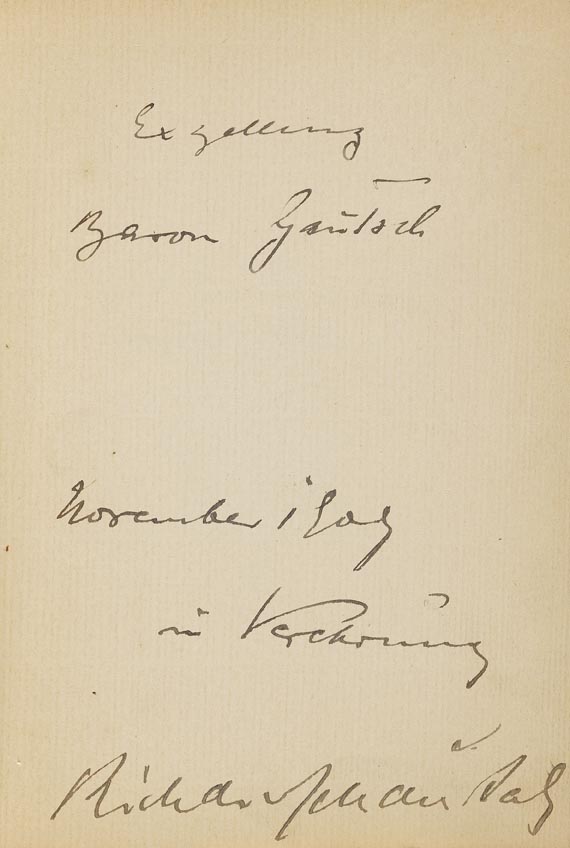 Exzellenz
Baron Gautsch
November 1909
in Verehrung
Richard Schaukal